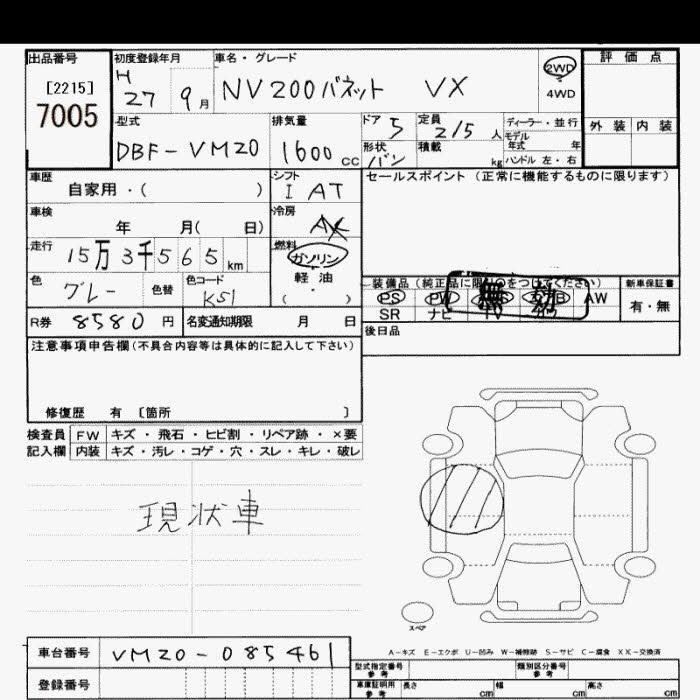 出品番号 初度登録年月 車名・グレード 評価点
[2215] H 27 9月 NV200バネット VX 2WD 4WD
7005
型式 排気量 ドア 5 定員 2/5 人 ディーラー・並行
DBF-VM20 1600 CC 形状 バン 積載 kg モデル年式 年 外装 内装
ハンドル 左・右
車歴 シフト セールスポイント(正常に機能するものに限ります)
自家用・( ) I AT
車検 冷房
年 月( 日)
走行 15万3千565km 燃料 ガソリン
軽油
色 グレー 色替 色コード K51 ( )
装備品(純正品に限り○をつけてください) 新車保証書
PS PW 無効 AW 有・無
SR ナビ TV
R券 8580 円 名変通知期限 月 日 後日品
注意事項申告欄(不具合内容等は具体的に記入して下さい)
修復歴 有 [箇所 ]
検査員 FW キズ・飛石・ヒビ割・リペア跡・×要
記入欄 内装 キズ・汚レ・コゲ・穴・スレ・キレ・破レ
現状車
スペア
A-キズ E-エクボ U-凹み W-補修跡 S-サビ C-腐食 XX-交換済
車台番号 VM20-085461
登録番号
型式指定番号 参考 類別区分番号 参考
車庫証明用 参考 長さ cm 幅 cm 高さ cm